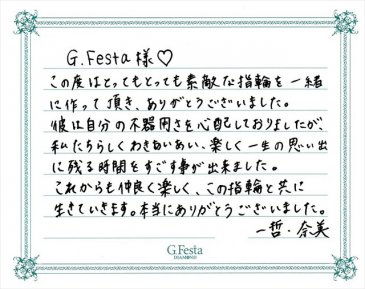 G.Festa様♡
この度はとってもとっても素敵な指輪を一緒
に作って頂き、ありがとうございました。
彼は自分の不器用さを心配しておりましたが、
私たちらしくわきあいあい、楽しく一生の思い出
に残る時間をすごす事が出来ました。
これからも仲良く楽しく、この指輪と共に
生きていきます。本当にありがとうございました。
一哲・奈美
G.Festa
DIAMOND